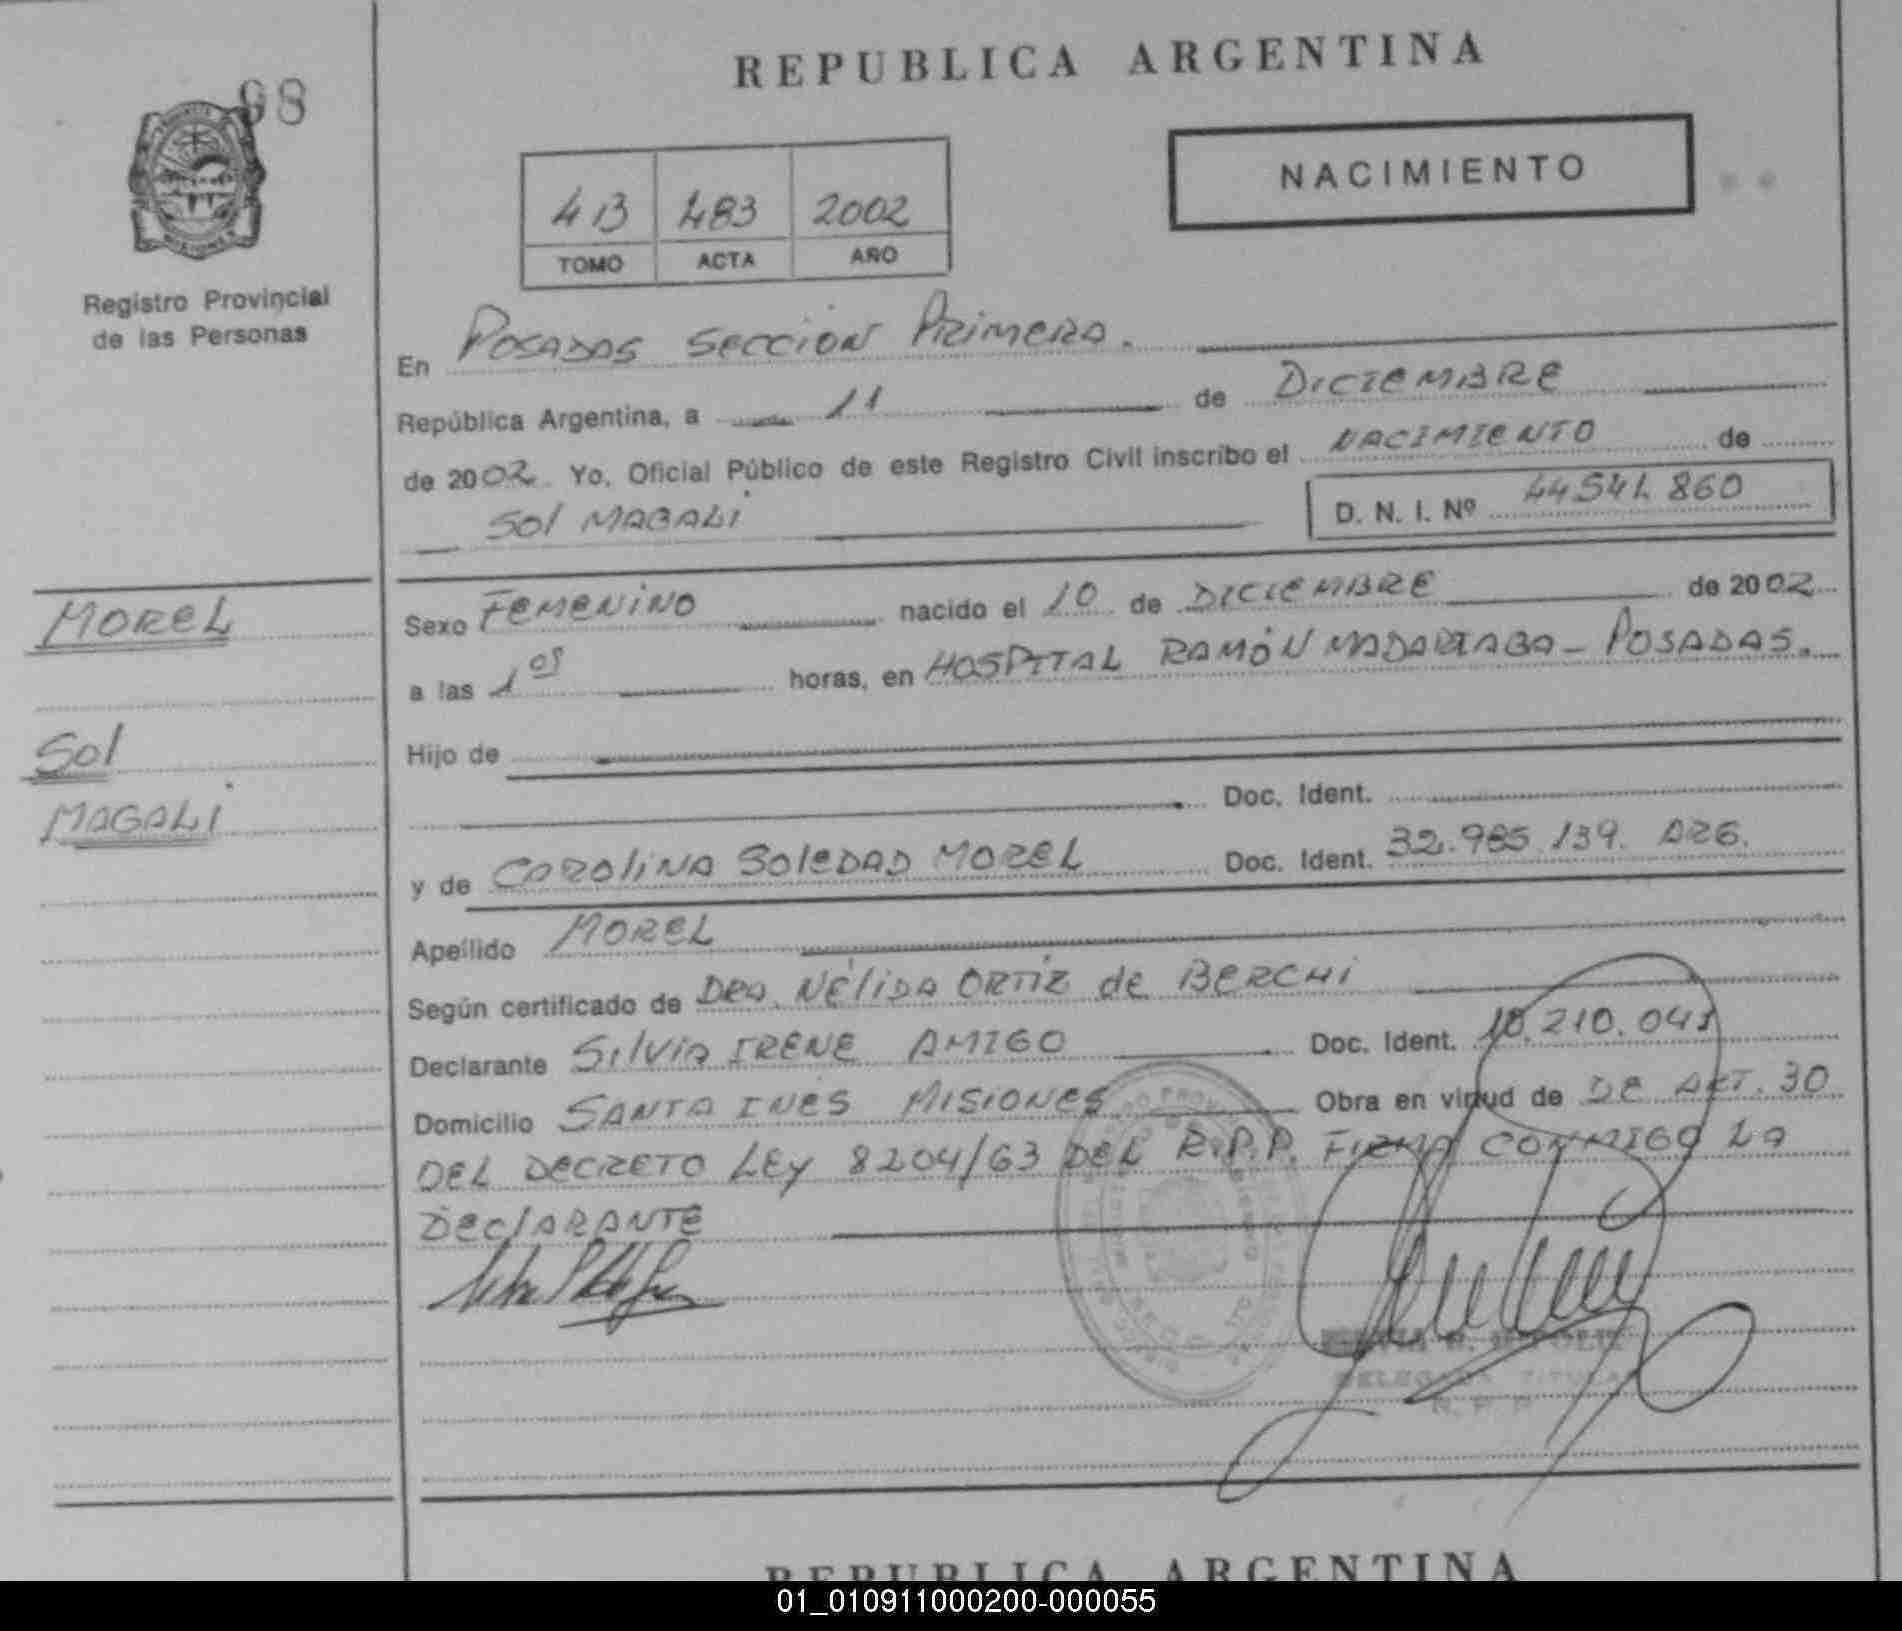 98
REPUBLICA ARGENTINA
NACIMIENTO
413 483 2002
TOMO ACTA AÑO
Registro Provincial
de las Personas
En POSADAS SECCION PRIMERA.
República Argentina, a 11 de DICIEMBRE
de 2002. Yo, Oficial Público de este Registro Civil inscribo el NACIMIENTO de
SOL MAGALI D. N. I. Nº 44541860
MOREL
SOL
MAGALI
Sexo FEMENINO nacido el 10 de DICIEMBRE de 2002
a las 1 05 horas, en HOSPITAL RAMÓN MADARIAGA - POSADAS.
Hijo de
Doc. Ident.
y de CAROLINA SOLEDAD MOREL Doc. Ident. 32.985.139. ARG.
Apellido MOREL
Según certificado de DRA. NÉLIDA ORTIZ de BERCHI
Declarante SILVIA IRENE AMIGO Doc. Ident. 210.043
Domicilio SANTA INÉS MISIONES Obra en virtud de DE ART. 30
DEL DECRETO LEY 8204/63 DEL R.P.P. FIRMA CONMIGO LA
DECLARANTE
DELEGADA TITULAR
R. P. P.
REPUBLICA ARGENTINA
01_010911000200-000055